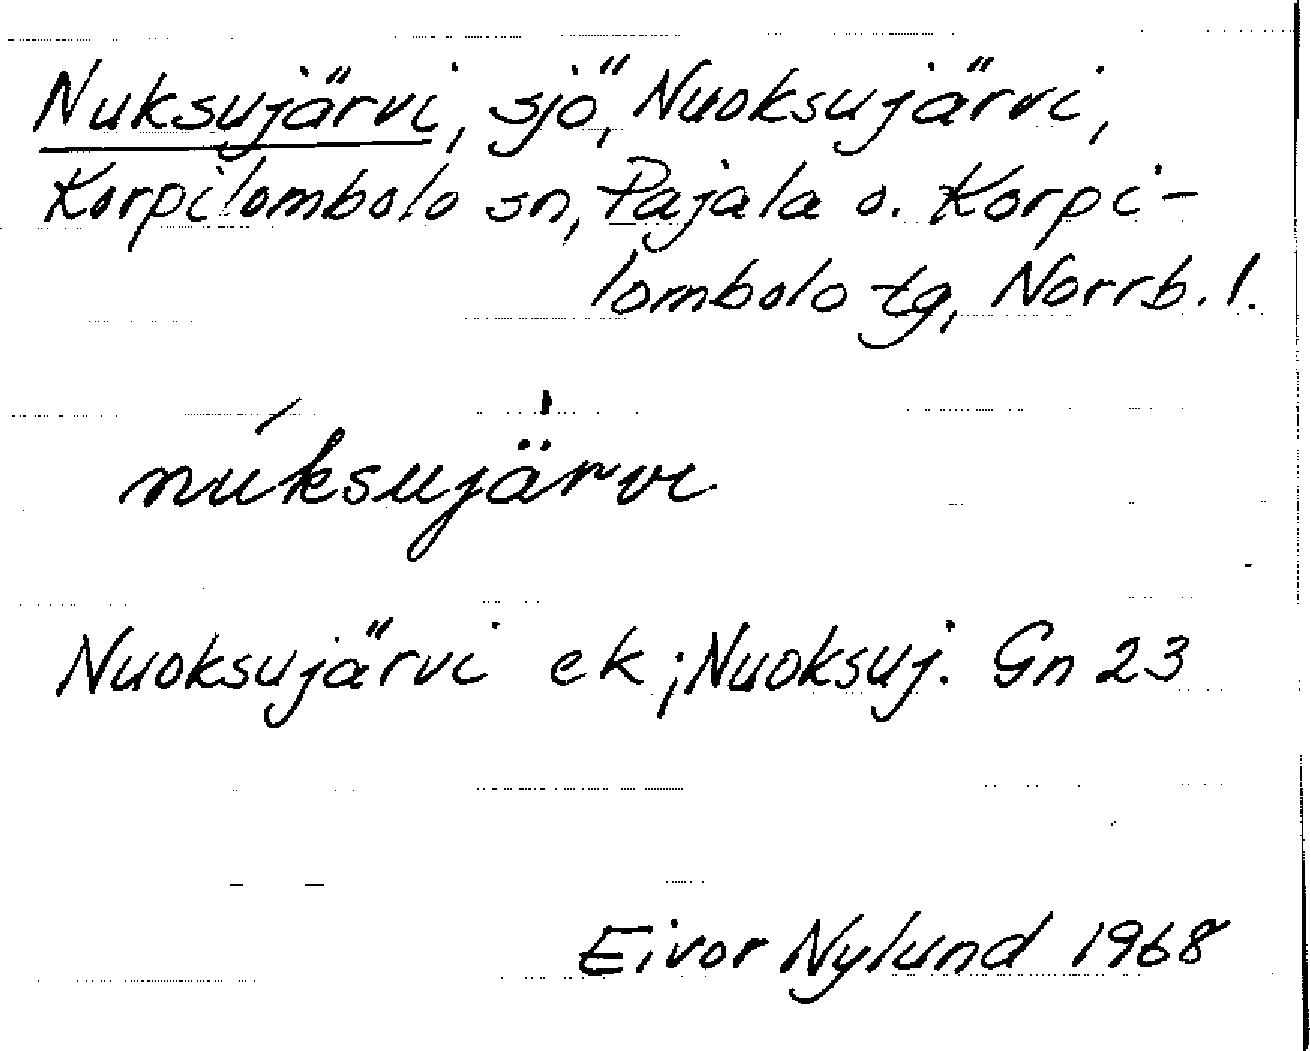 Nuksujärvi, sjö, Nuoksujärvi,
Korpilombolo sn, Pajala o. Korpi-
lombolo tg, Norrb. l.
núksujär̀vi
Nuoksujärvi ek; Nuoksuj. Gn 23
Eivor Nylund 1968